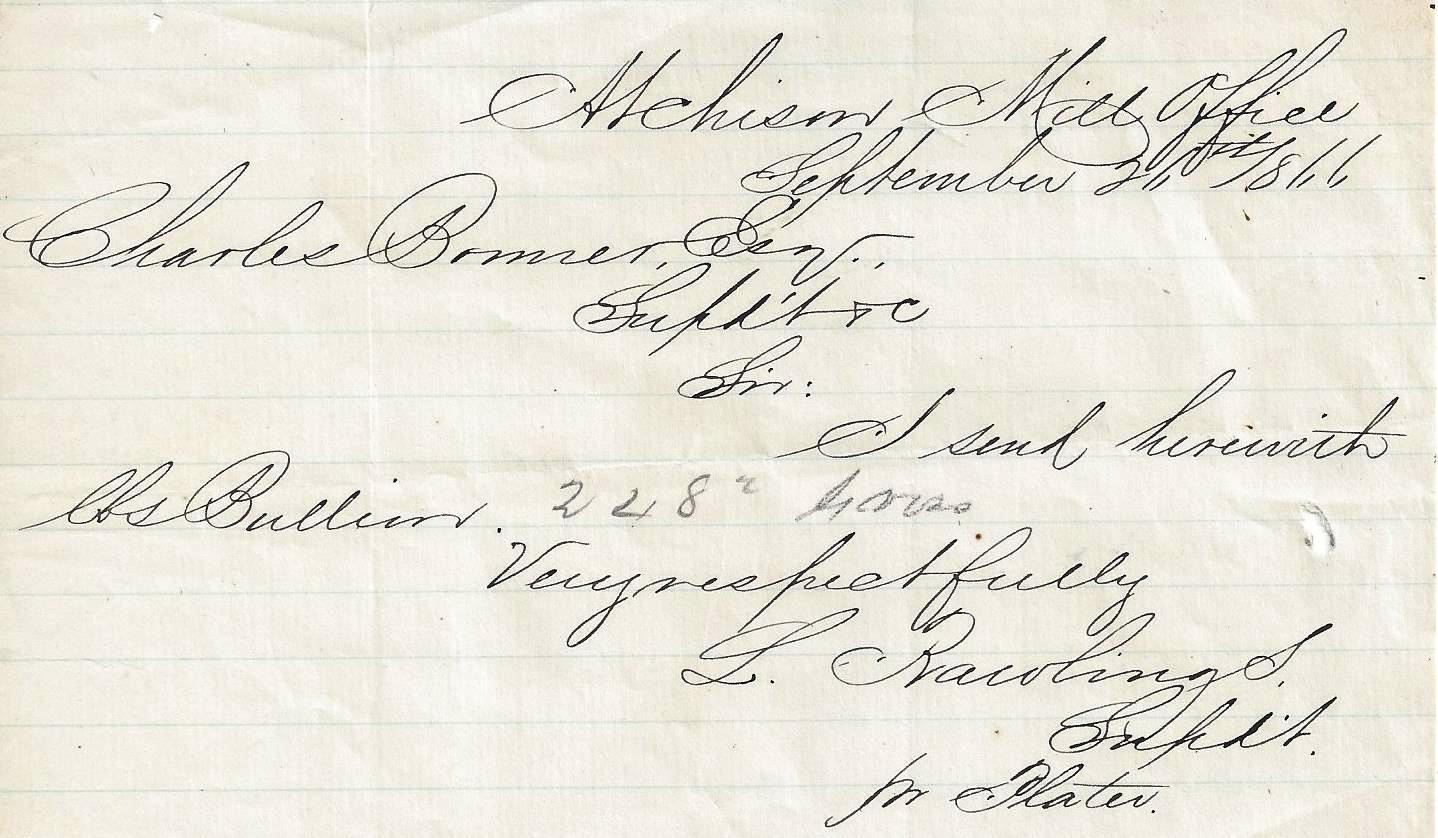 Atchison Mill Office
September 26th 1866
Charles Bonner, Esq.,
Supd't & C
Sir:
I send herewith
lbs Bullion. 228
Very respectfully
L. Rawlings.
Supd't.
pr Plater.